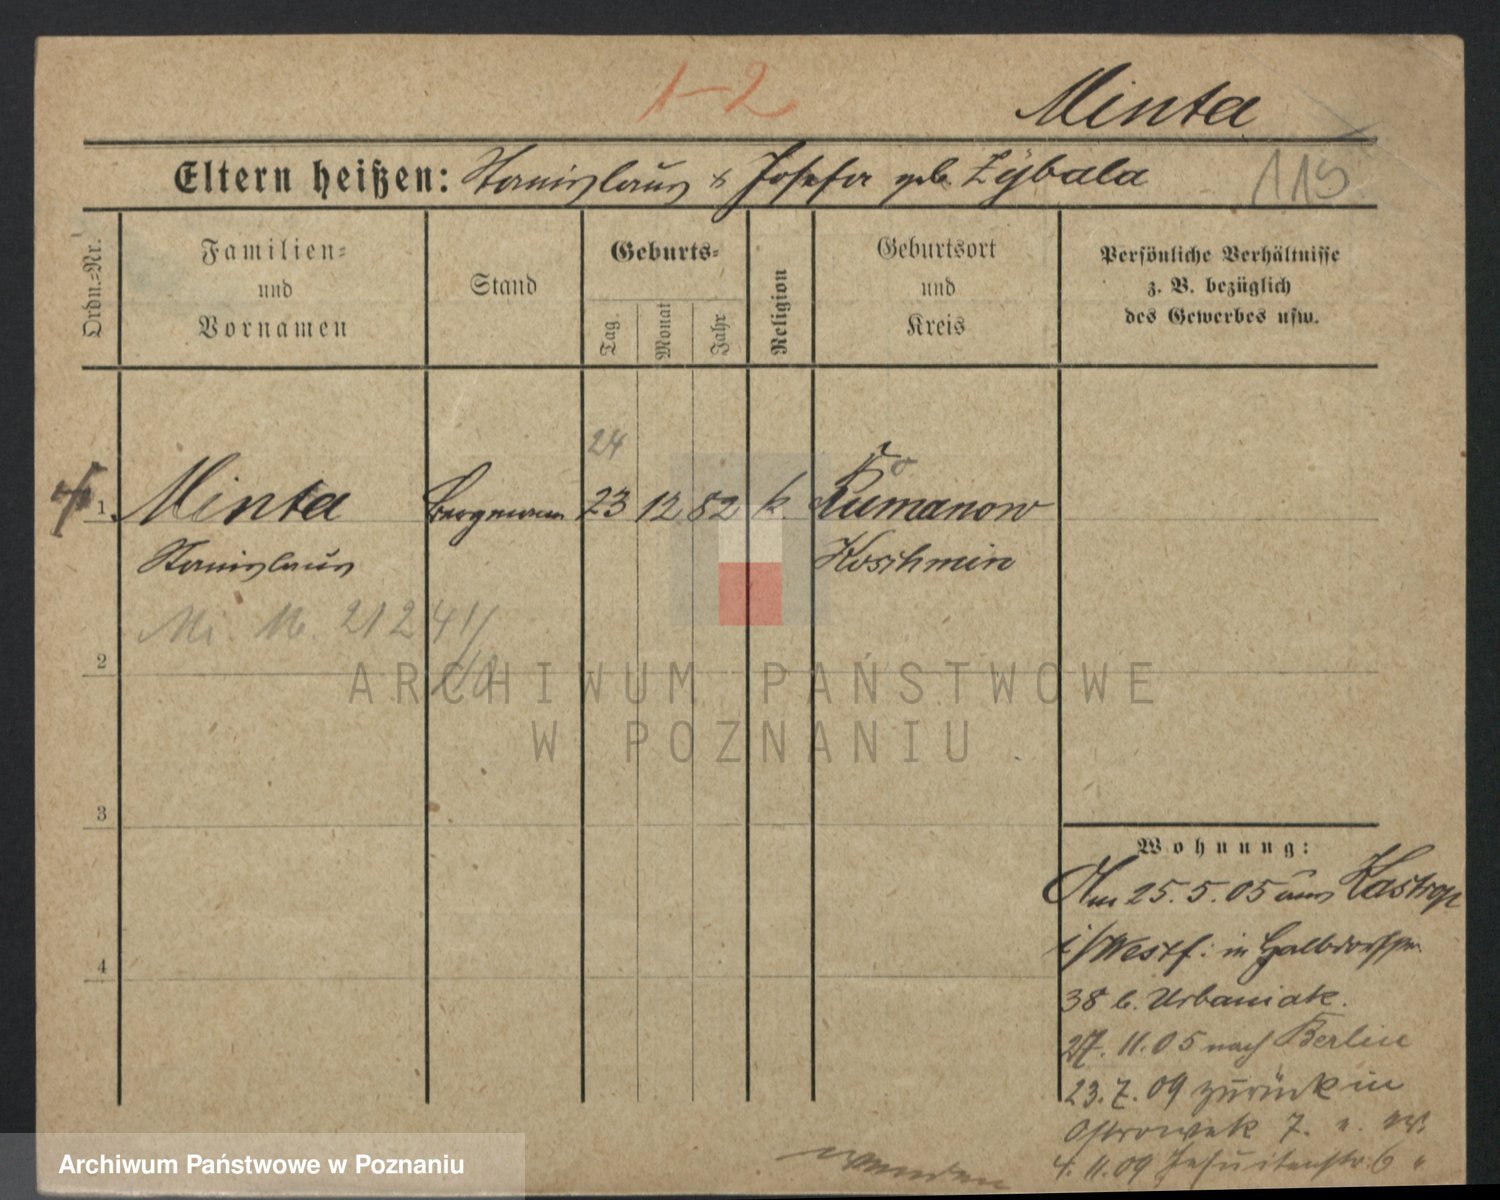 1-2
Minta
Eltern heißen: Stanislaus & Josefa geb. Zÿbala
115
Ordn.-Nr.
Familien-
und
Vornamen
Stand
Geburts-
Tag
Monat
Jahr
Religion
Geburtsort
und
Kreis
Persönliche Verhältnisse
z. B. bezüglich
des Gewerbes usw.
24
1 Minta Bergmann 23 12 82 k. Rumanow
Stanislaus Koschmin
21241/
2
ARCHIWUM PAŃSTWOWE
W POZNANIU
3
Wohnung:
Am 25.5.05 aus Kastrop
i/Westf: in Halbdorfstr.
4
38 b. Urbaniak.
27.11.05 nach Berlin
23.7.09 zurück in
Ostrowek 7.
4.11.09 Jesuitenstr. 6
wenden
Archiwum Państwowe w Poznaniu